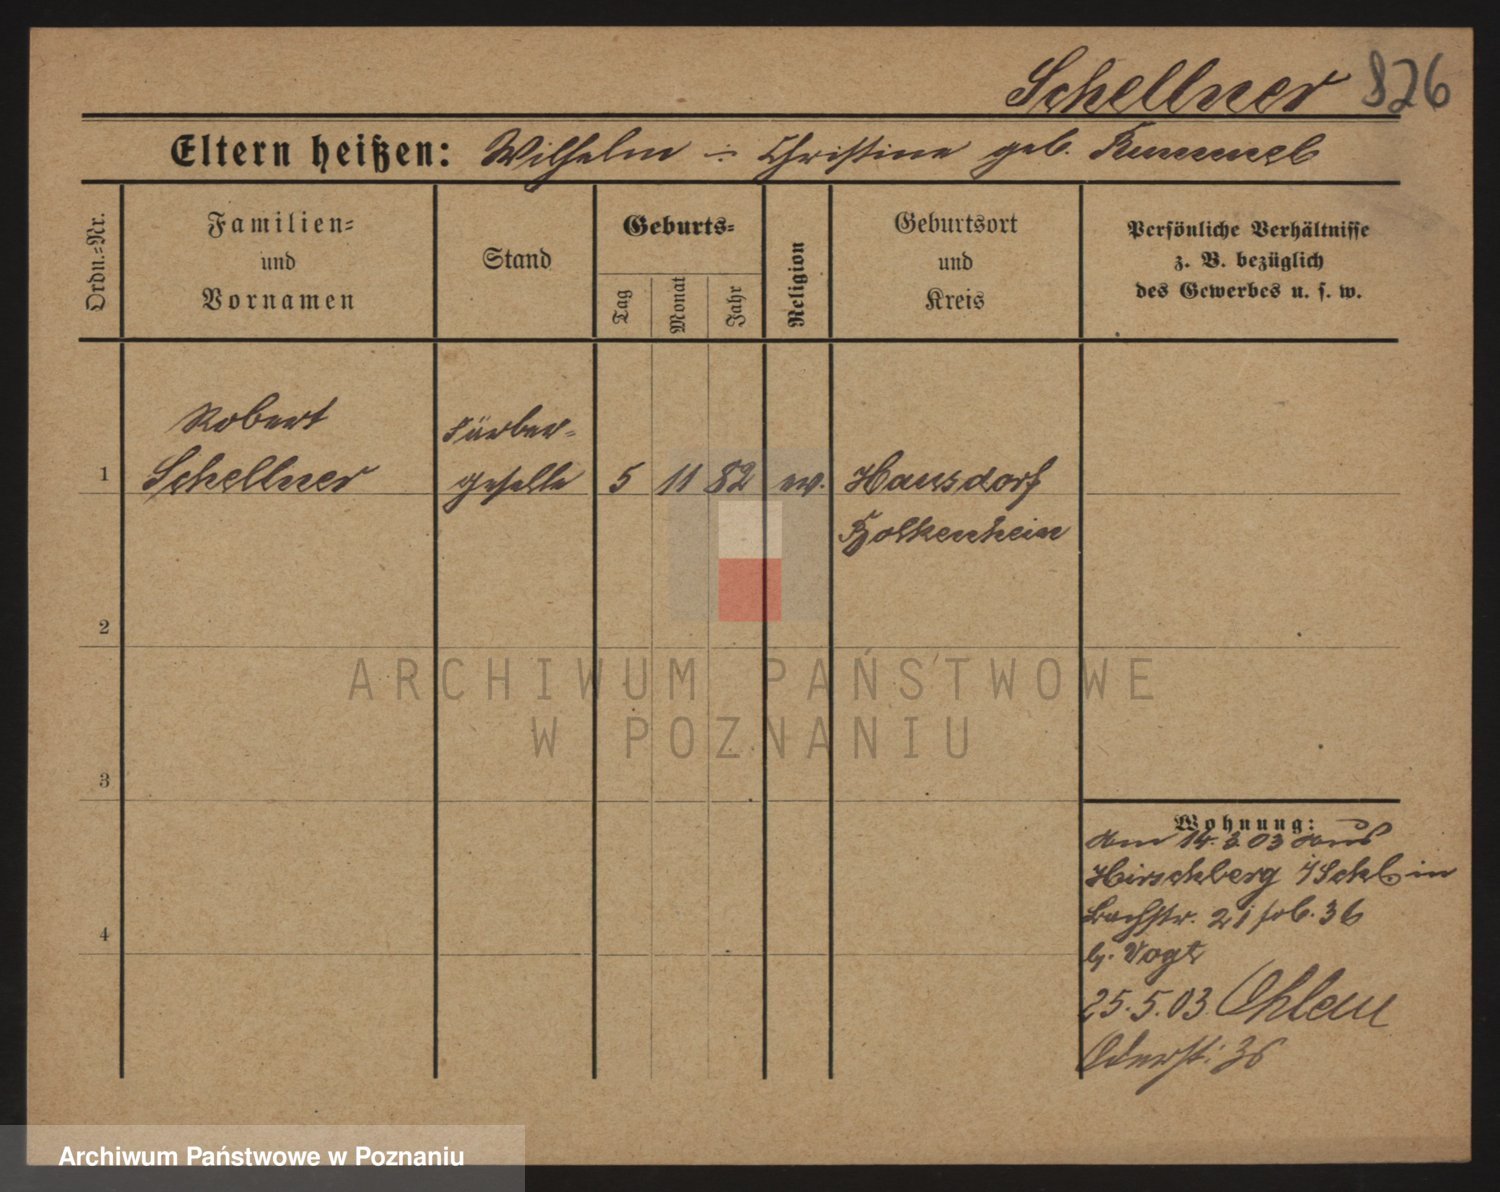 Schellner 826
Eltern heißen: Wilhelm u. Christine geb. Rummel
Ordn.=Nr.
Familien=
und
Vornamen
Stand
Geburts=
Tag
Monat
Jahr
Religion
Geburtsort
und
Kreis
Persönliche Verhältnisse
z. B. bezüglich
des Gewerbes u. s. w.
1
Robert
Schellner
Färber-
geselle
5 11 82 ev.
Hausdorf
Bolkenhein
2
3
4
Wohnung:
Am 14.3.03 aus
Hirschberg i/Schl. in
Bachstr. 21
b. Vogt
25.5.03 Ohlau
Oderstr. 36
ARCHIWUM PAŃSTWOWE
W POZNANIU
Archiwum Państwowe w Poznaniu